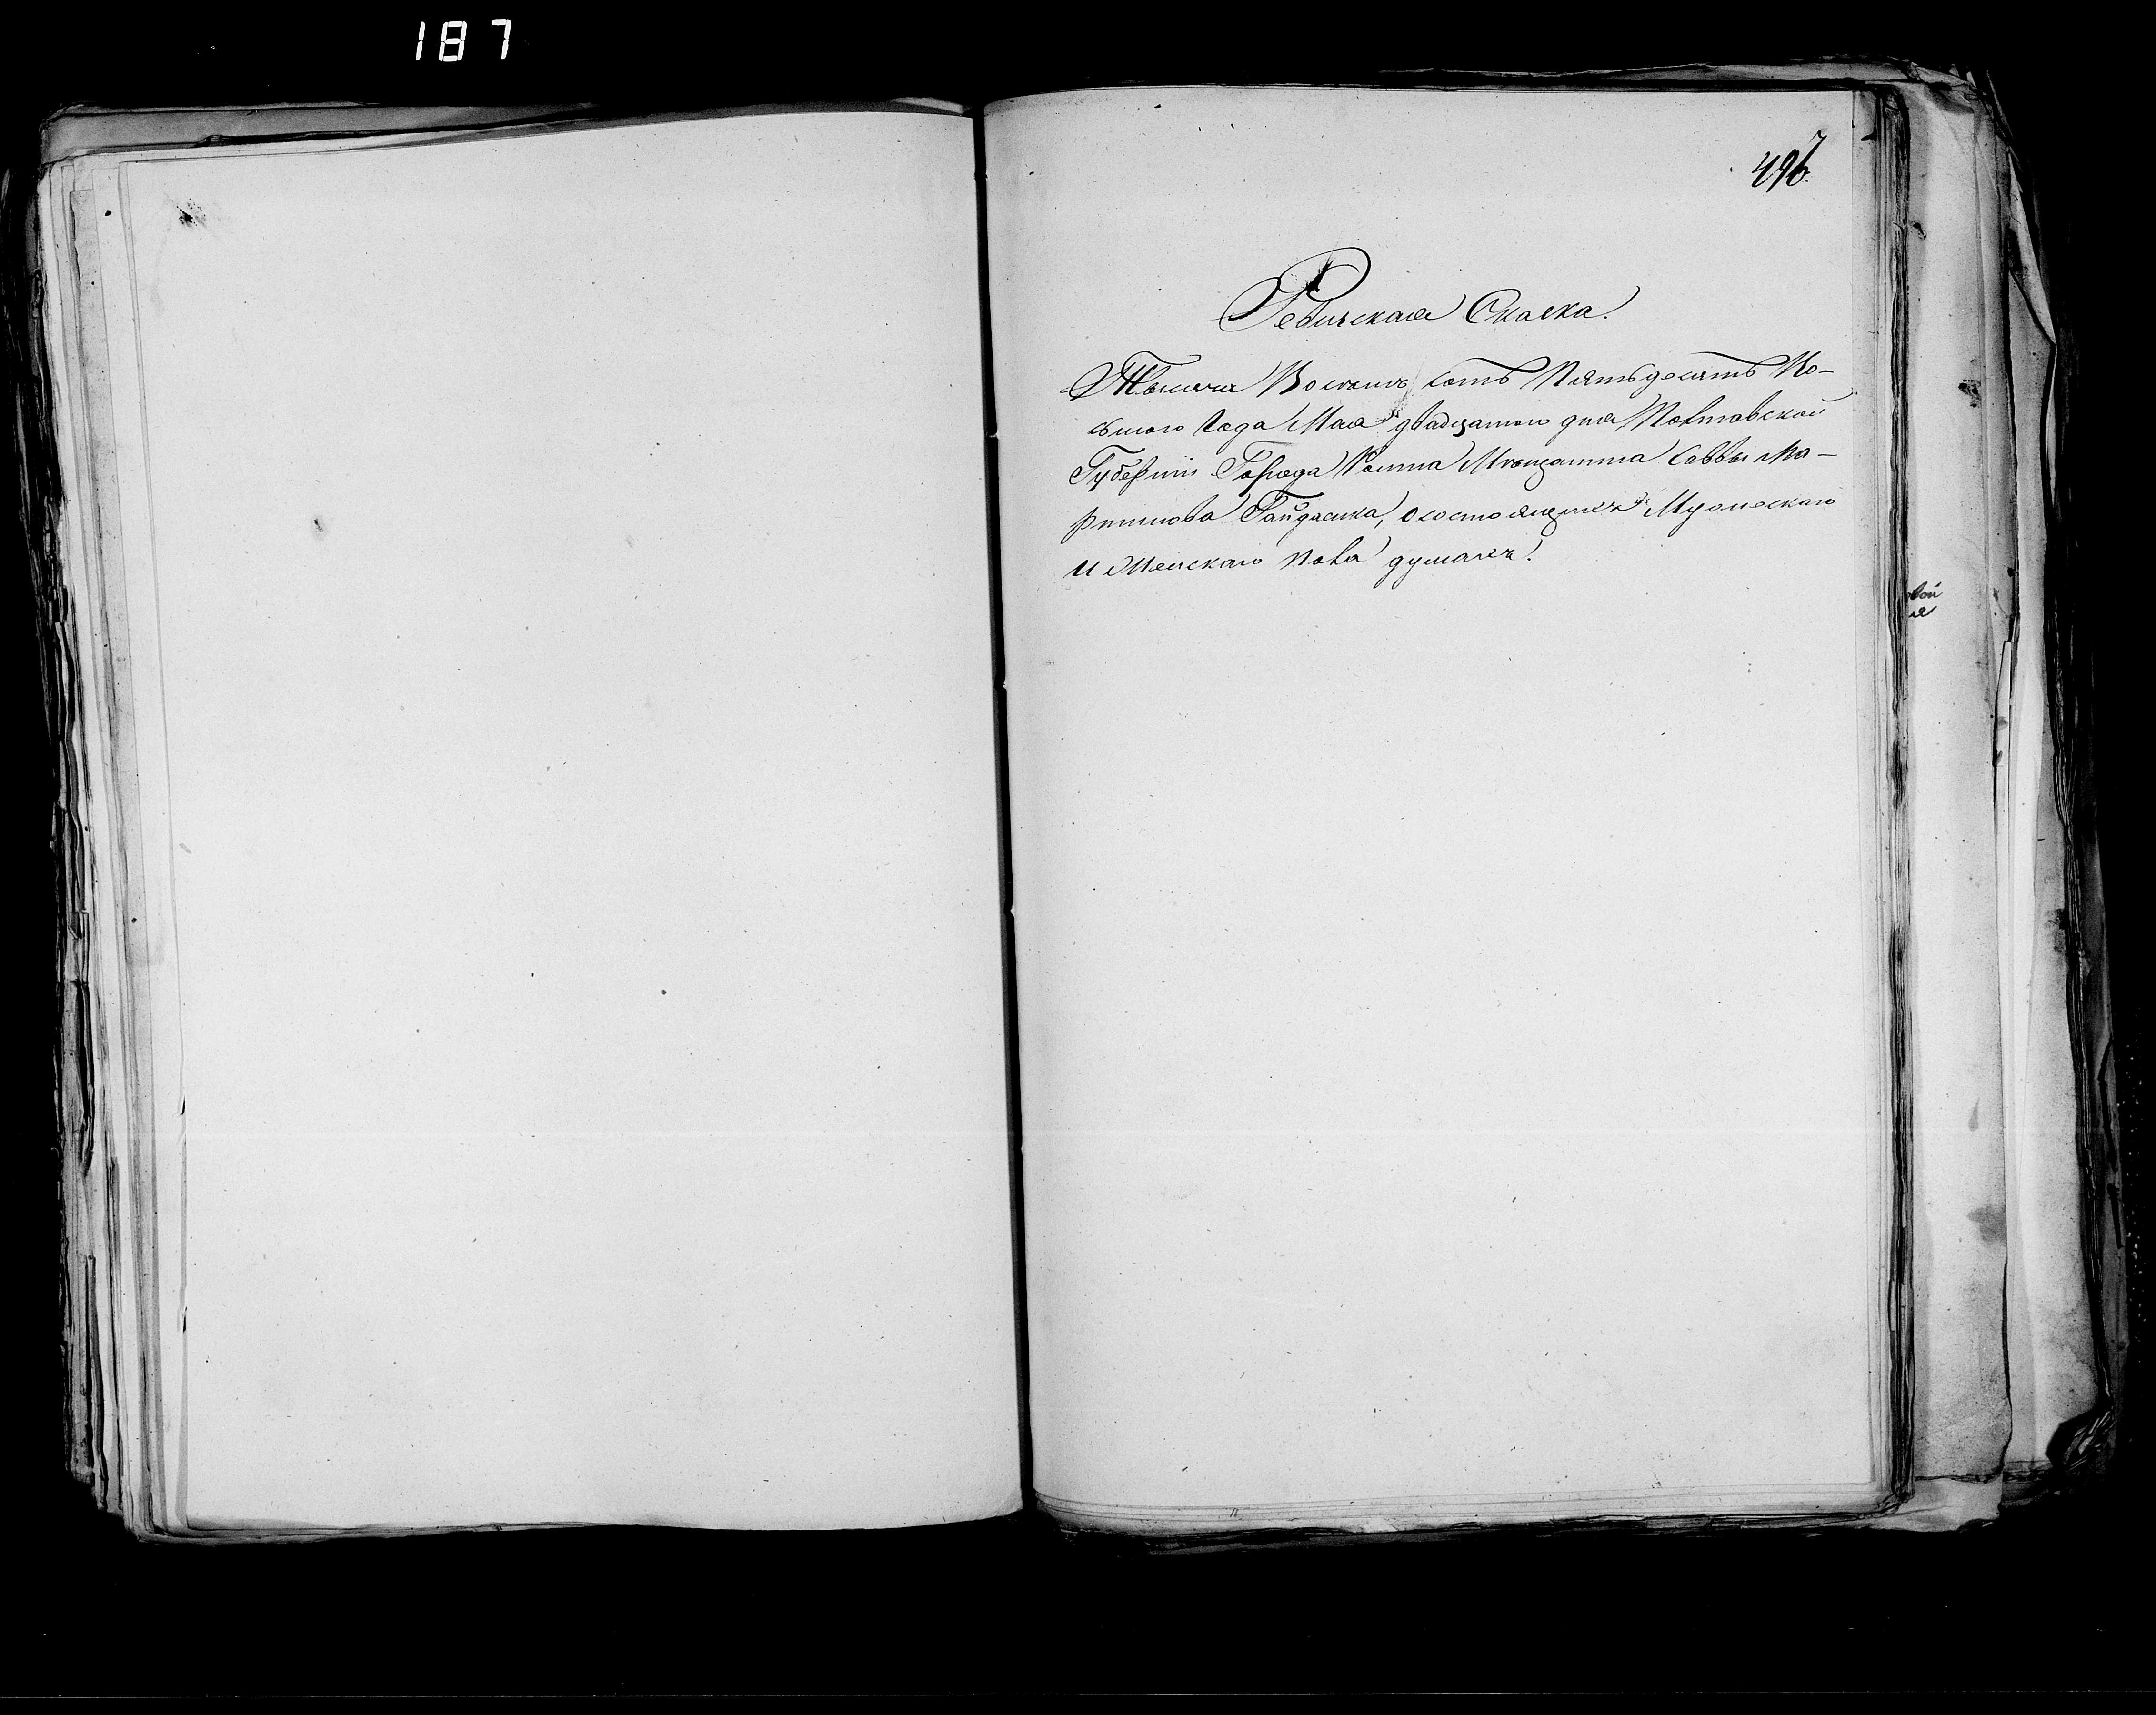 187
497
Ревизская Сказка.
Тысяча Восемь сотъ Пятьдесятъ Во-
сьмого Года Мая двадцатого дня Полтавской
Губерніи Города Ромна Мѣщанина Саввы Ма-
ртинова Гайдасика, о состоящихъ Мужескаго
и Женскаго пола душахъ.